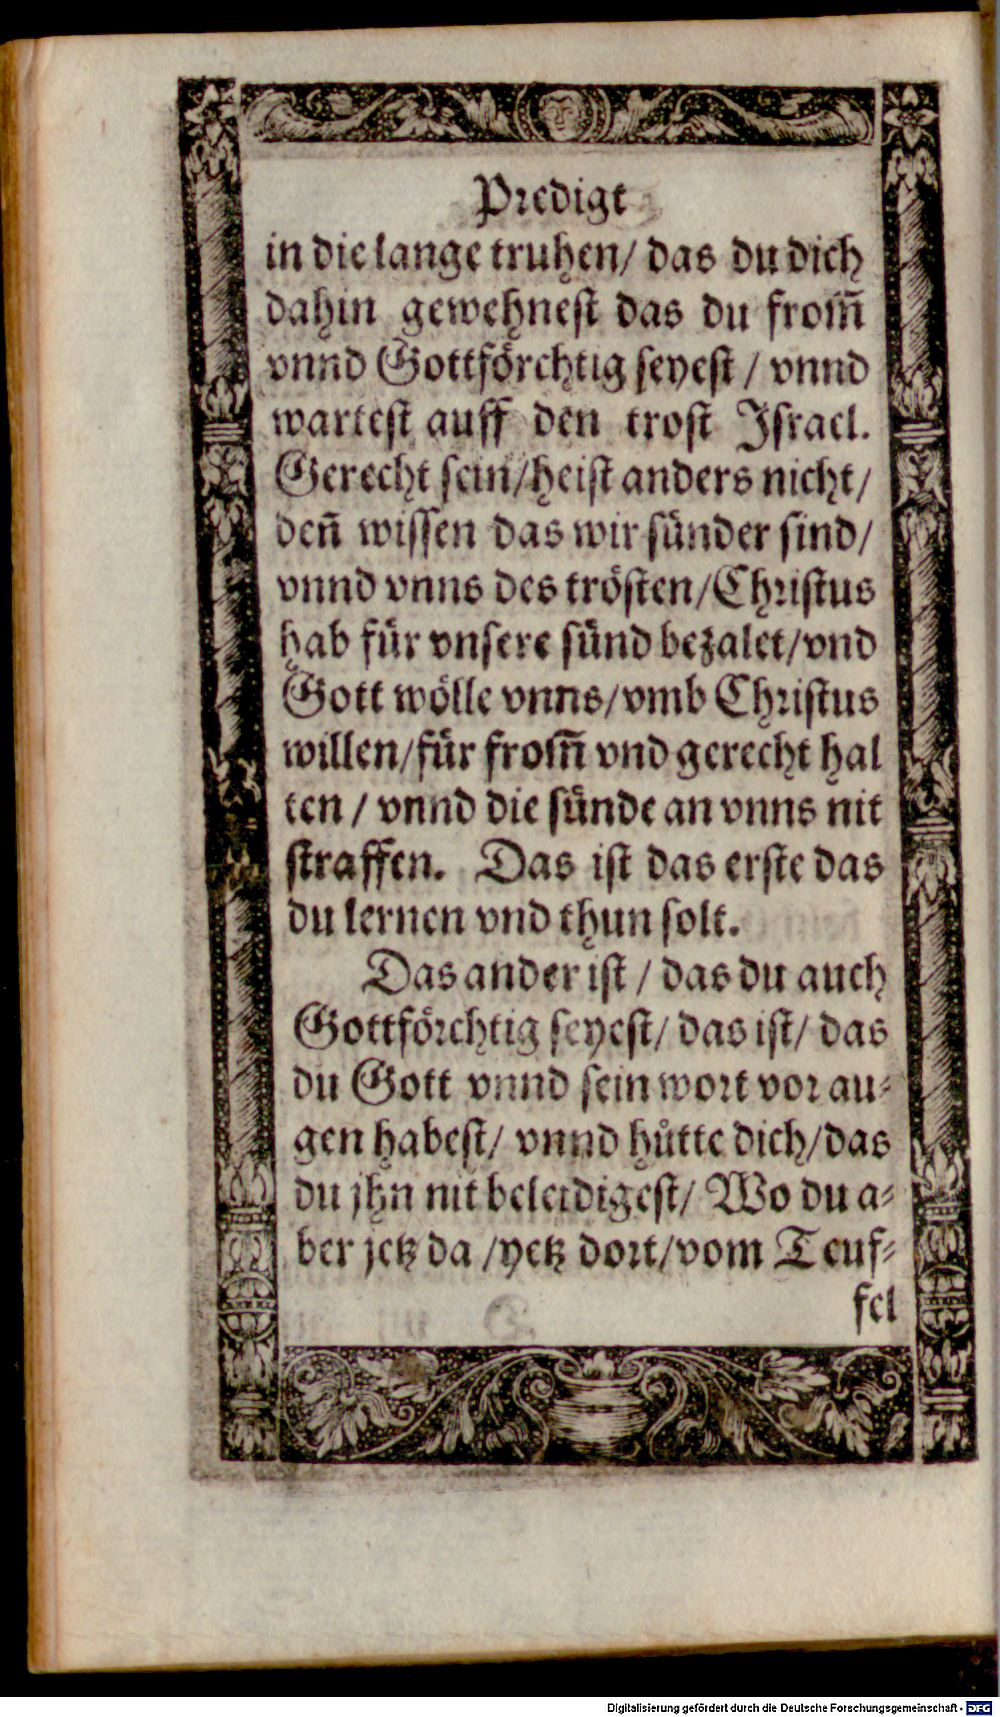 Predigt
in die lange truhen/ das du dich
dahin gewehnest das du from̄
vnnd Gottförchtig seyest / vnnd
wartest auff den trost Israel.
Gerecht sein/heist anders nicht/
den̄ wissen das wir sünder sind/
vnnd vnns des trösten/Christus
hab für vnsere sünd bezalet/vnd
Gott wölle vnns/vmb Christus
willen/für from̄ vnd gerecht hal
ten / vnnd die sünde an vnns nit
straffen. Das ist das erste das
du lernen vnd thun solt.
Das ander ist / das du auch
Gottförchtig seyest/ das ist/ das
du Gott vnnd sein wort vor au⸗
gen habest/ vnnd hůtte dich/das
du jhn nit beleidigest/ Wo du a⸗
ber jetz da /yetz dort/vom Teuf⸗
fel
Digitalisierung gefördert durch die Deutsche Forschungsgemeinschaft - DFG